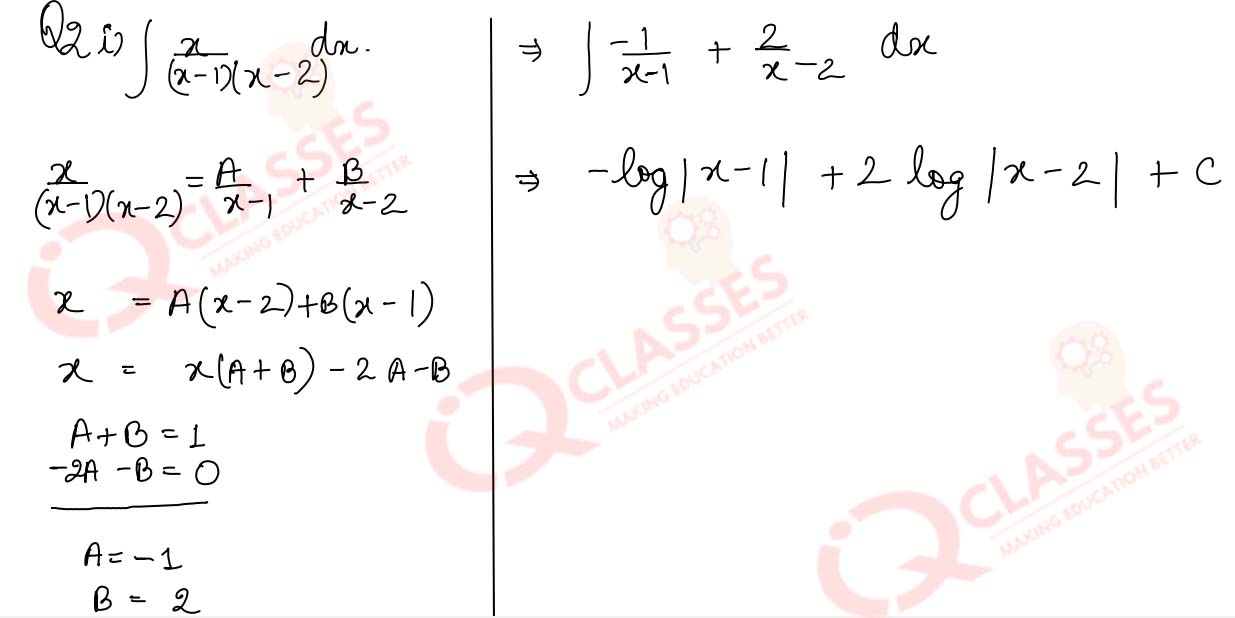 Q2 i) ∫ x/((x-1)(x-2)) dx.
x/((x-1)(x-2)) = A/(x-1) + B/(x-2)
x = A(x-2)+B(x-1)
x = x(A+B) - 2A-B
A+B = 1
-2A -B = 0
A = -1
B = 2
⇒ ∫ -1/(x-1) + 2/(x-2) dx
⇒ -log|x-1| + 2 log|x-2| + C
iQ CLASSES
MAKING EDUCATION BETTER
iQ CLASSES
MAKING EDUCATION BETTER
iQ CLASSES
MAKING EDUCATION BETTER